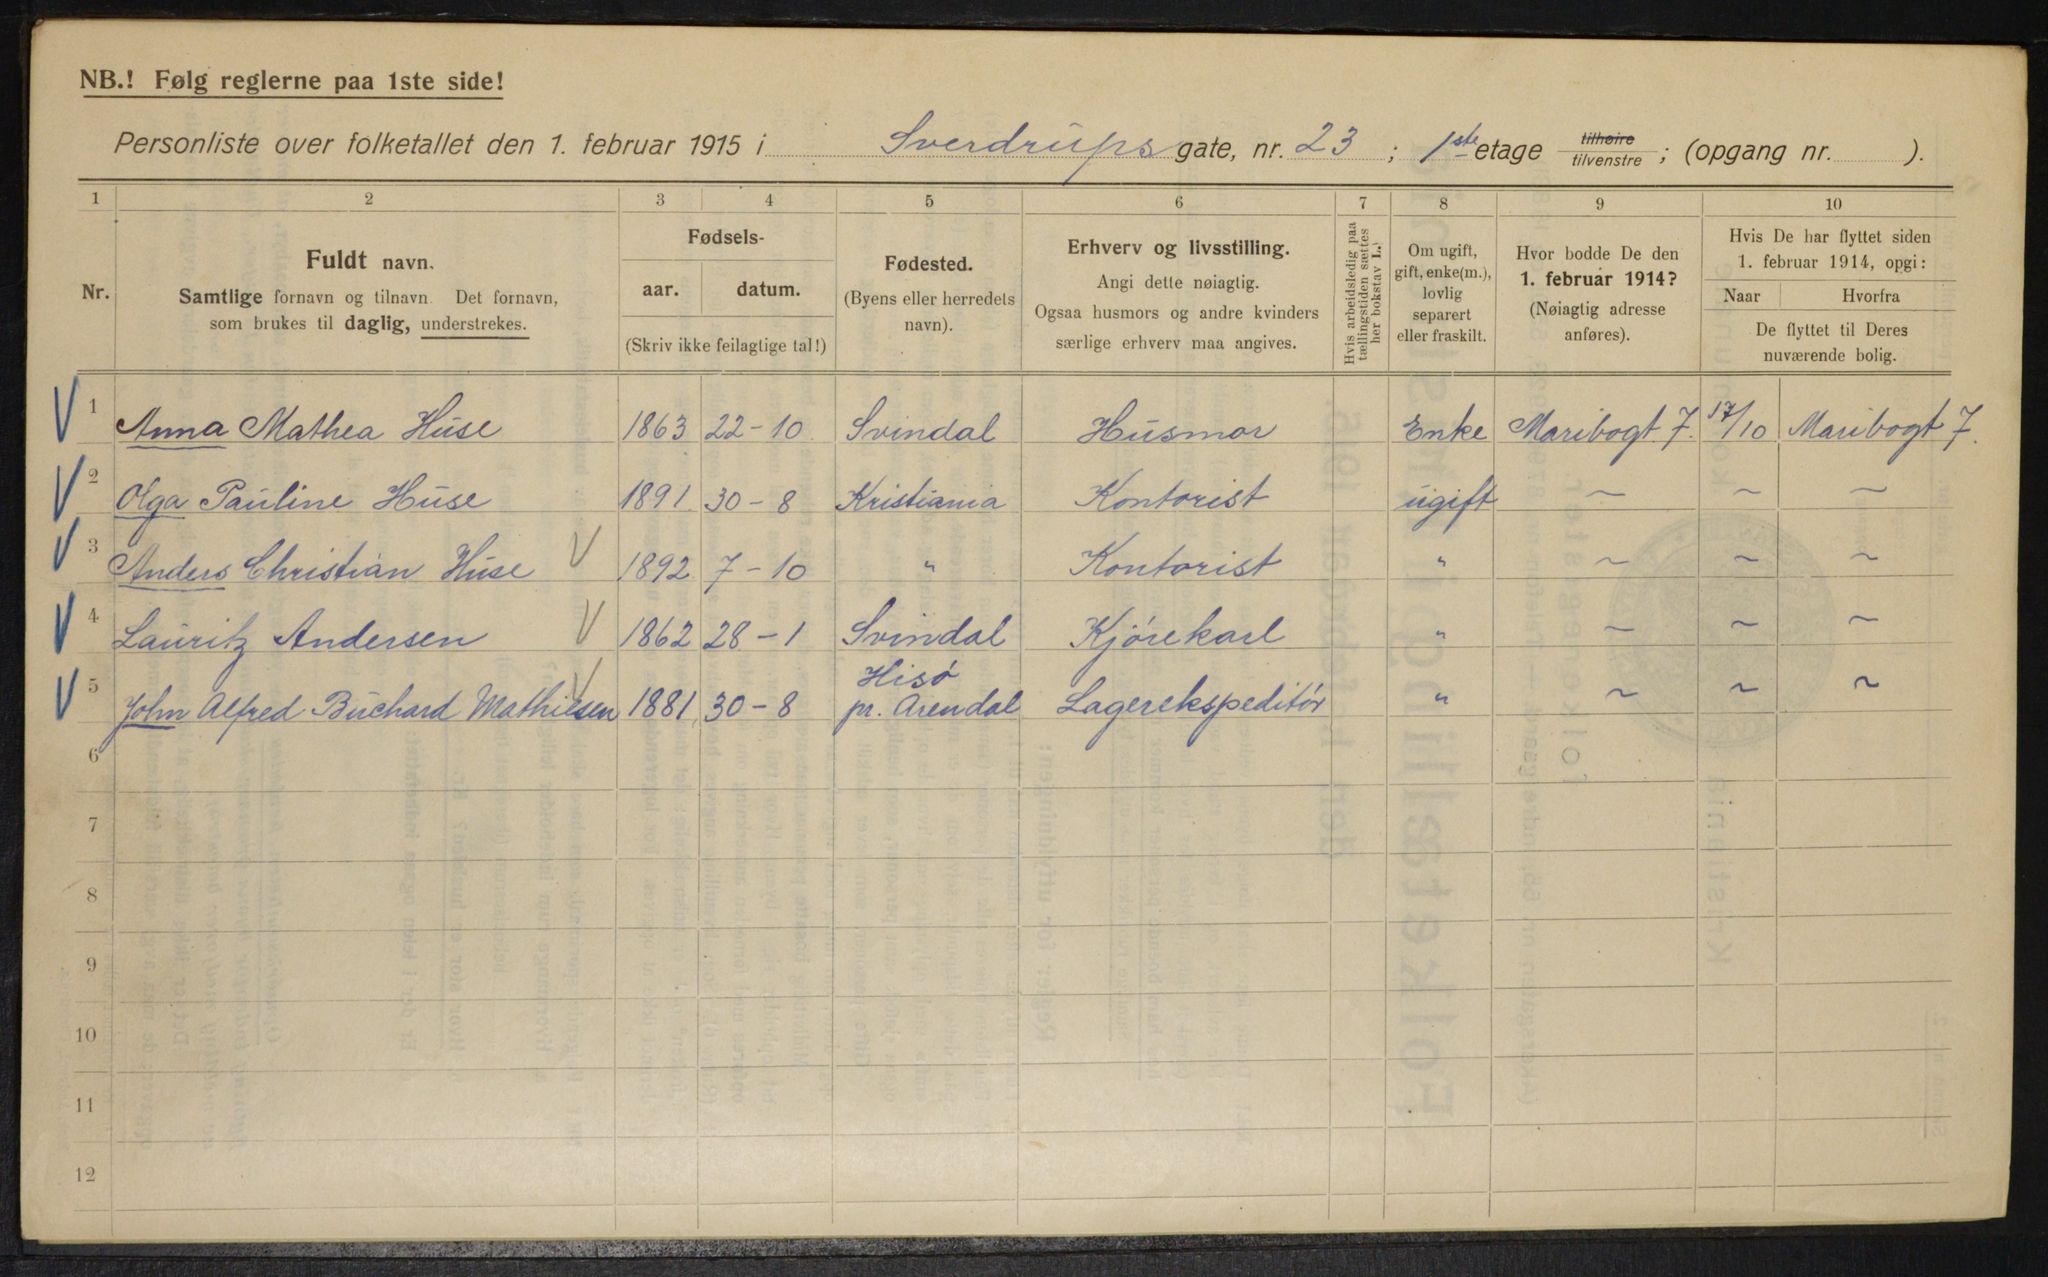 NB.! Følg reglerne paa 1ste side!
Personliste over folketallet den 1. februar 1915 i Sverdrups gate, nr. 23 ; 1ste etage tilhøire tilvenstre ; (opgang nr. ).
1 2 3 4 5 6 7 8 9 10
Nr.
Fuldt navn.
Samtlige fornavn og tilnavn. Det fornavn,
som brukes til daglig, understrekes.
Fødsels-
aar. datum.
(Skriv ikke feilagtige tal!)
Fødested.
(Byens eller herredets
navn).
Erhverv og livsstilling.
Angi dette nøiagtig.
Ogsaa husmors og andre kvinders
særlige erhverv maa angives.
Hvis arbeidsledig paa
tællingstiden sættes
her bokstav L.
Om ugift,
gift, enke(m.),
lovlig
separert
eller fraskilt.
Hvor bodde De den
1. februar 1914?
(Nøiagtig adresse
anføres).
Hvis De har flyttet siden
1. februar 1914, opgi:
Naar Hvorfra
De flyttet til Deres
nuværende bolig.
1 Anna Mathea Huse 1863 22-10 Svindal Husmor Enke Maribogt 7. 17/10 Maribogt 7.
2 Olga Pauline Huse 1891 30-8 Kristiania Kontorist ugift ~ ~ ~
3 Anders Christian Huse 1892 7-10 " Kontorist " ~ ~ ~
4 Lauritz Andersen 1862 28-1 Svindal Kjørekarl " ~ ~ ~
5 John Alfred Buchard Mathiesen 1881 30-8 Hisø
pr. Arendal Lagerekspeditør " ~ ~ ~
6
7
8
9
10
11
12